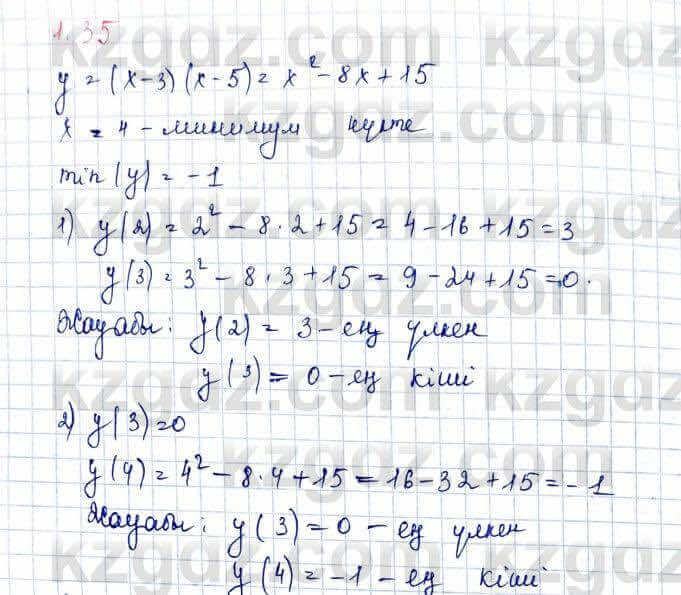 1.35
y = (x-3)(x-5) = x² - 8x + 15
x = 4 - минимум нүкте
min(y) = -1
1) y(2) = 2² - 8·2 + 15 = 4 - 16 + 15 = 3
y(3) = 3² - 8·3 + 15 = 9 - 24 + 15 = 0.
Жауабы: y(2) = 3 - ең үлкен
y(3) = 0 - ең кіші
2) y(3) = 0
y(4) = 4² - 8·4 + 15 = 16 - 32 + 15 = -1
Жауабы: y(3) = 0 - ең үлкен
y(4) = -1 - ең кіші
kzgdz.com